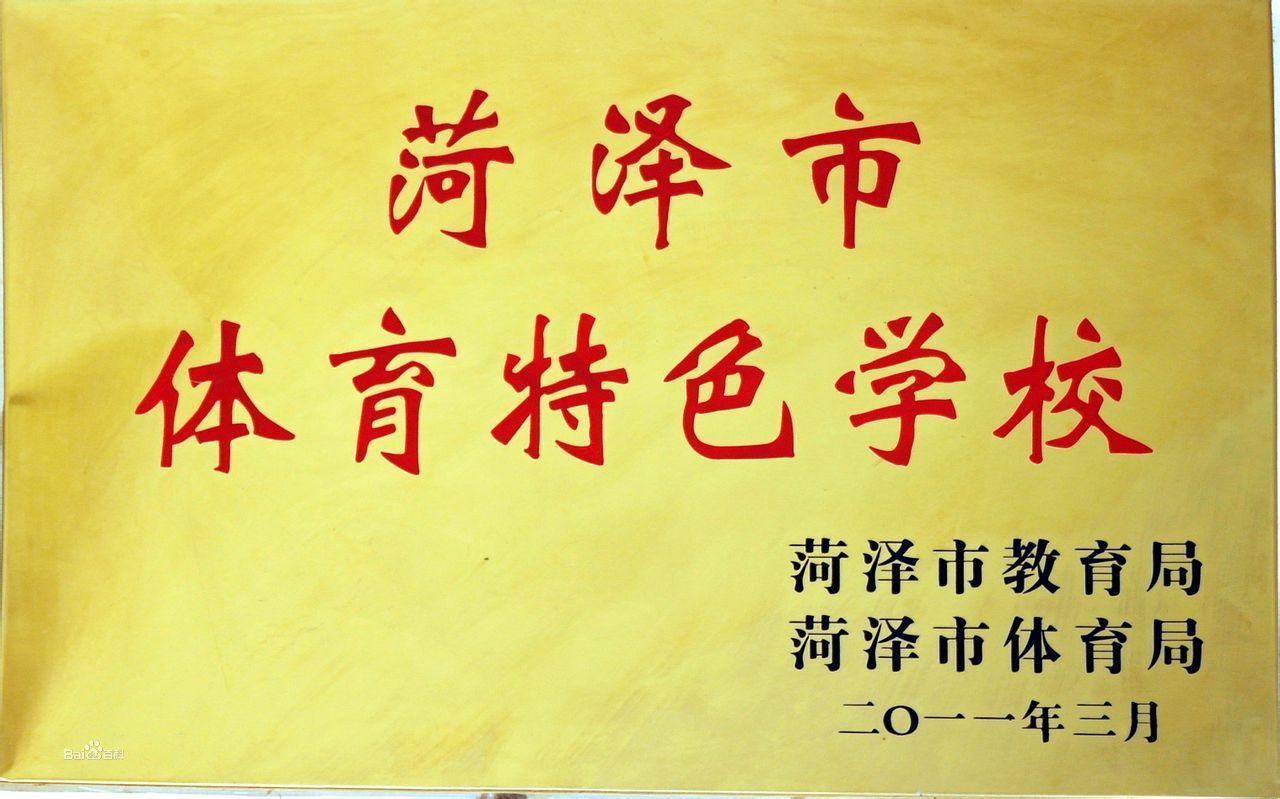 菏泽市
体育特色学校
菏泽市教育局
菏泽市体育局
二〇一一年三月
Baidu百科